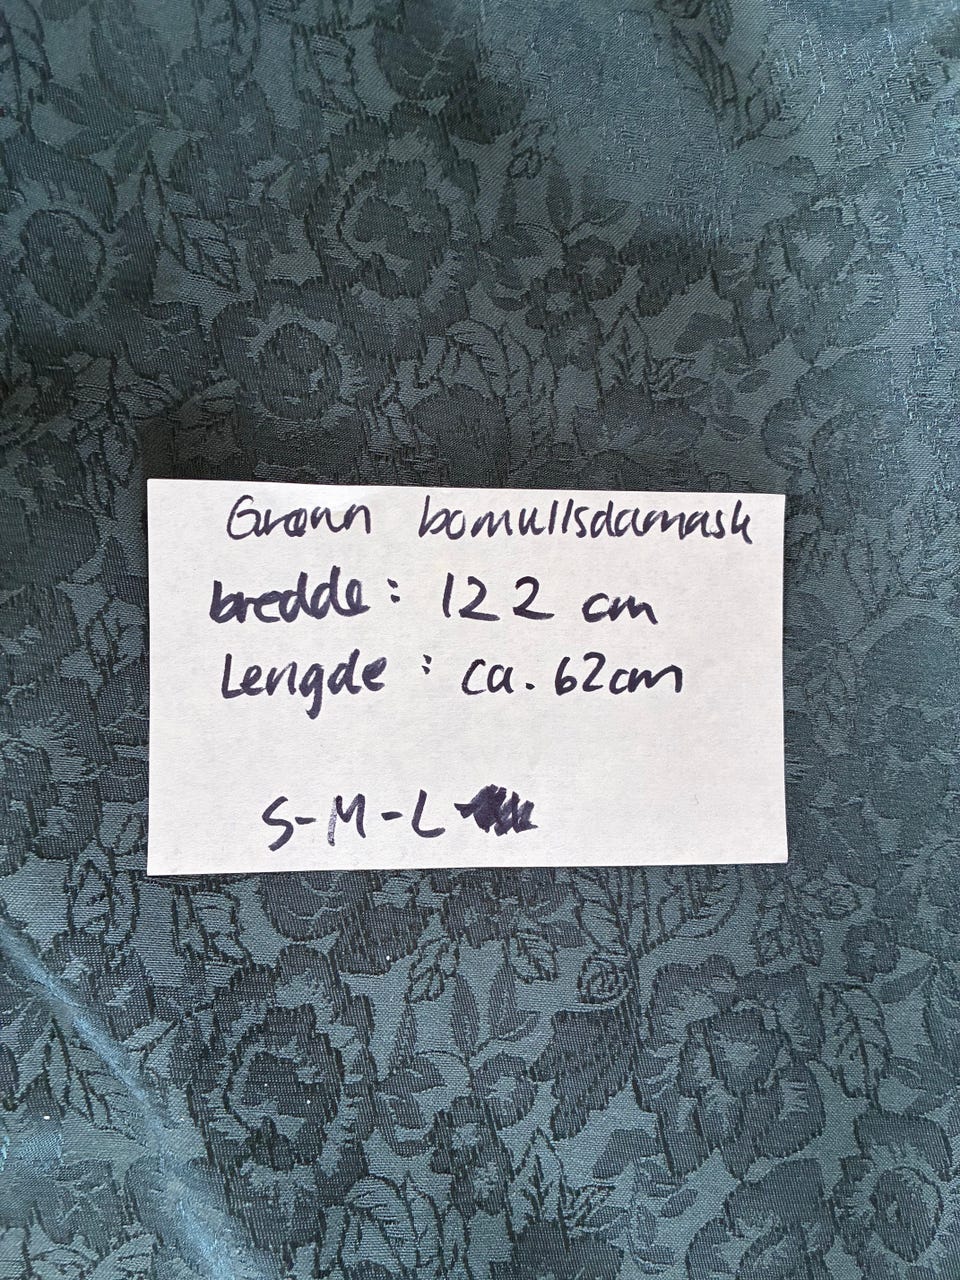 Grønn bomullsdamask
bredde: 122 cm
Lengde: ca. 62cm
S-M-L-